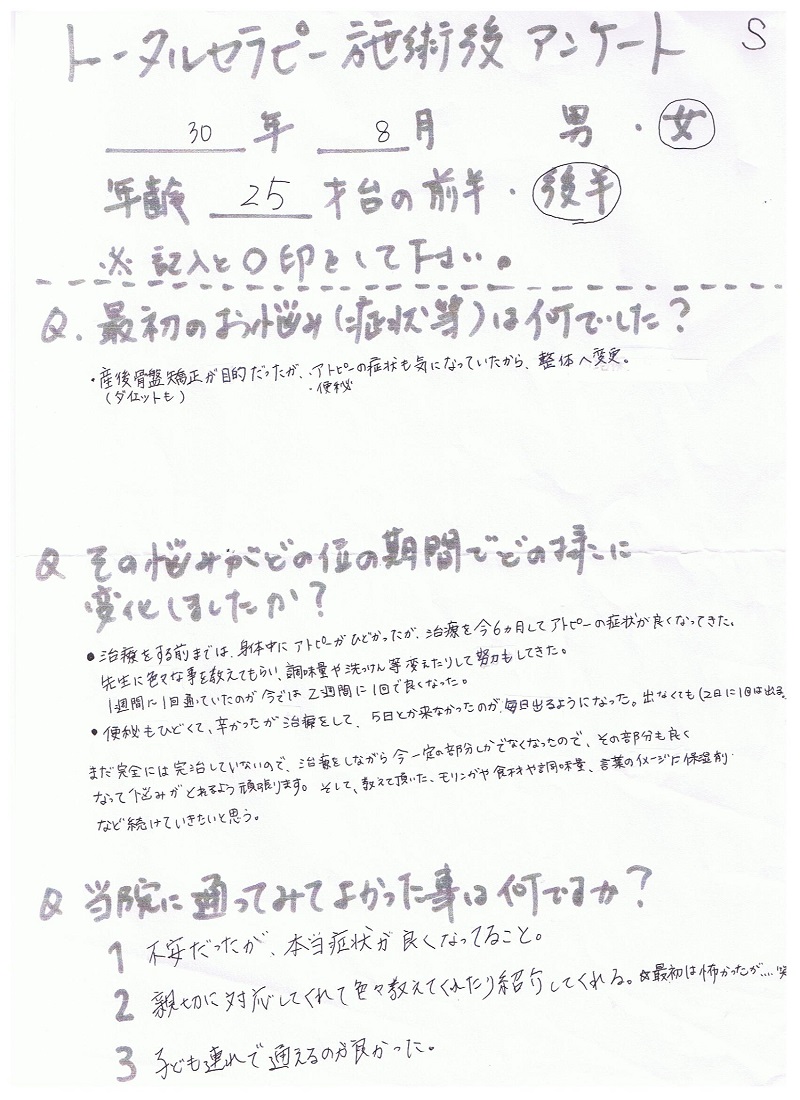 トータルセラピー施術後 アンケート S
30 年 8 月 男・女
年齢 25 才台の前半・後半
※ 記入と〇印をして下さい。
Q. 最初のお悩み(症状等)は何でした?
・産後骨盤矯正が目的だったが、・アトピーの症状も気になっていたから、整体へ変更。
(ダイエットも) ・便秘
Q その悩みがどの位の期間でどの様に
変化しましたか?
●治療をする前までは、身体中にアトピーがひどかったが、治療を今6ヵ月してアトピーの症状が良くなってきた。
先生に色々な事を教えてもらい、調味量や洗っけん等変えたりして努力もしてきた。
1週間に1回通っていたのが今では2週間に1回で良くなった。
●便秘もひどくて、辛かったが治療をして、5日とか来なかったのが、毎日出るようになった。出なくても(2日に1回は出る。
まだ完全には完治していないので、治療をしながら今一定の部分しかでなくなったので、その部分も良く
なって悩みがとれるよう頑張ります。そして、教えて頂いた、モリンガや食材や調味量、言葉のイメージに保湿剤
など続けていきたいと思う。
Q 当院に通ってみてよかった事は何ですか?
1 不安だったが、本当症状が良くなってること。
2 親切に対応してくれて色々教えてくれたり紹介してくれる。最初は怖かったが....笑
3 子ども連れで通えるのが良かった。